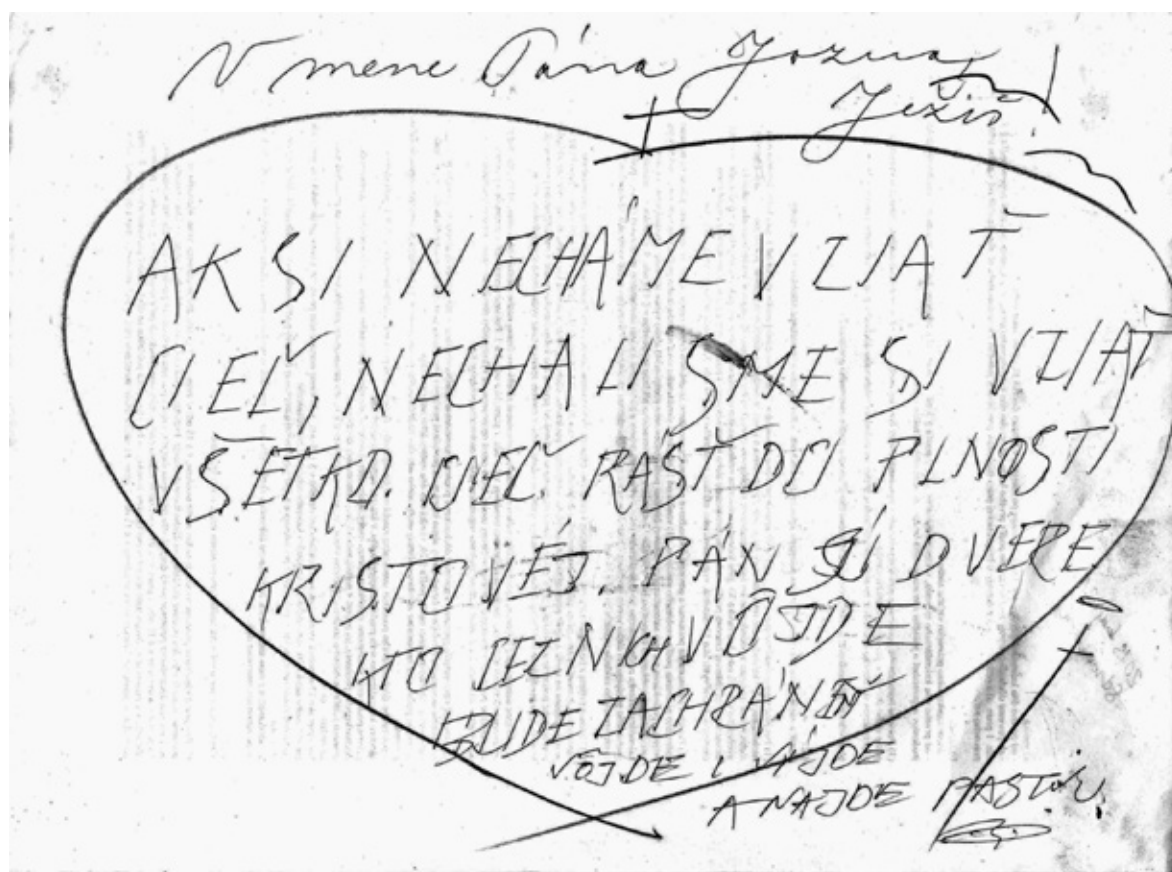 V mene Pána Jozua,
Ježiš!
AK SI NECHÁME VZIAŤ
CIEĽ, NECHALI SME SI VZIAŤ
VŠETKO. CIEĽ RÁSŤ DO PLNOSTI
KRISTOVEJ. PÁN SÚ DVERE
KTO CEZ NICH VOJDE
BUDE ZACHRÁNENÝ
VÔJDE I VÝJDE
A NÁJDE PASTVU